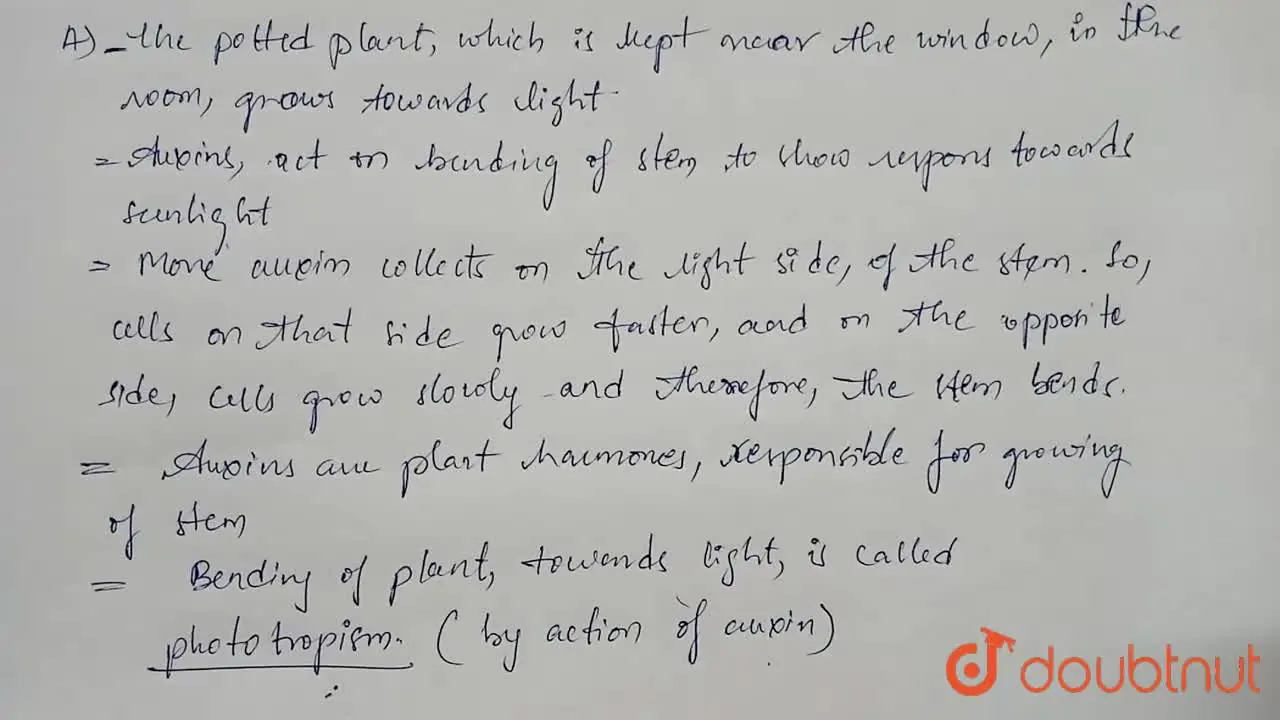 A) - the potted plant, which is kept near the window, in the
room, grows towards light.
= Auxins, act on bending of stem, to show respons towards
sunlight
= More auxin collects on the light side, of the stem. So,
cells on that side grow faster, and on the opposite
side, cells grow slowly and therefore, the stem bends.
= Auxins are plant harmones, responsible for growing
of stem
= Bending of plant, towards light, is called
phototropism. (by action of auxin)
doubtnut